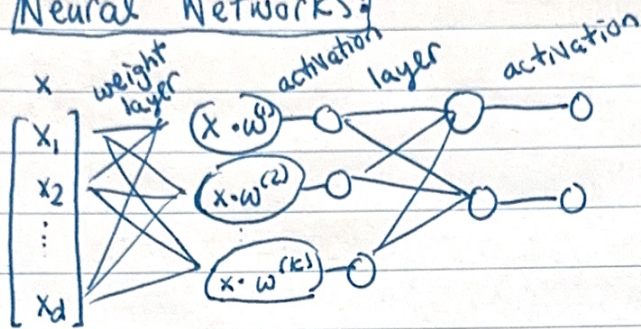 Neural Networks:
x weight layer activation layer activation
x₁ x · w⁽¹⁾
x₂ x · w⁽²⁾
⋮ ⋮
x_d x · w⁽ᵏ⁾